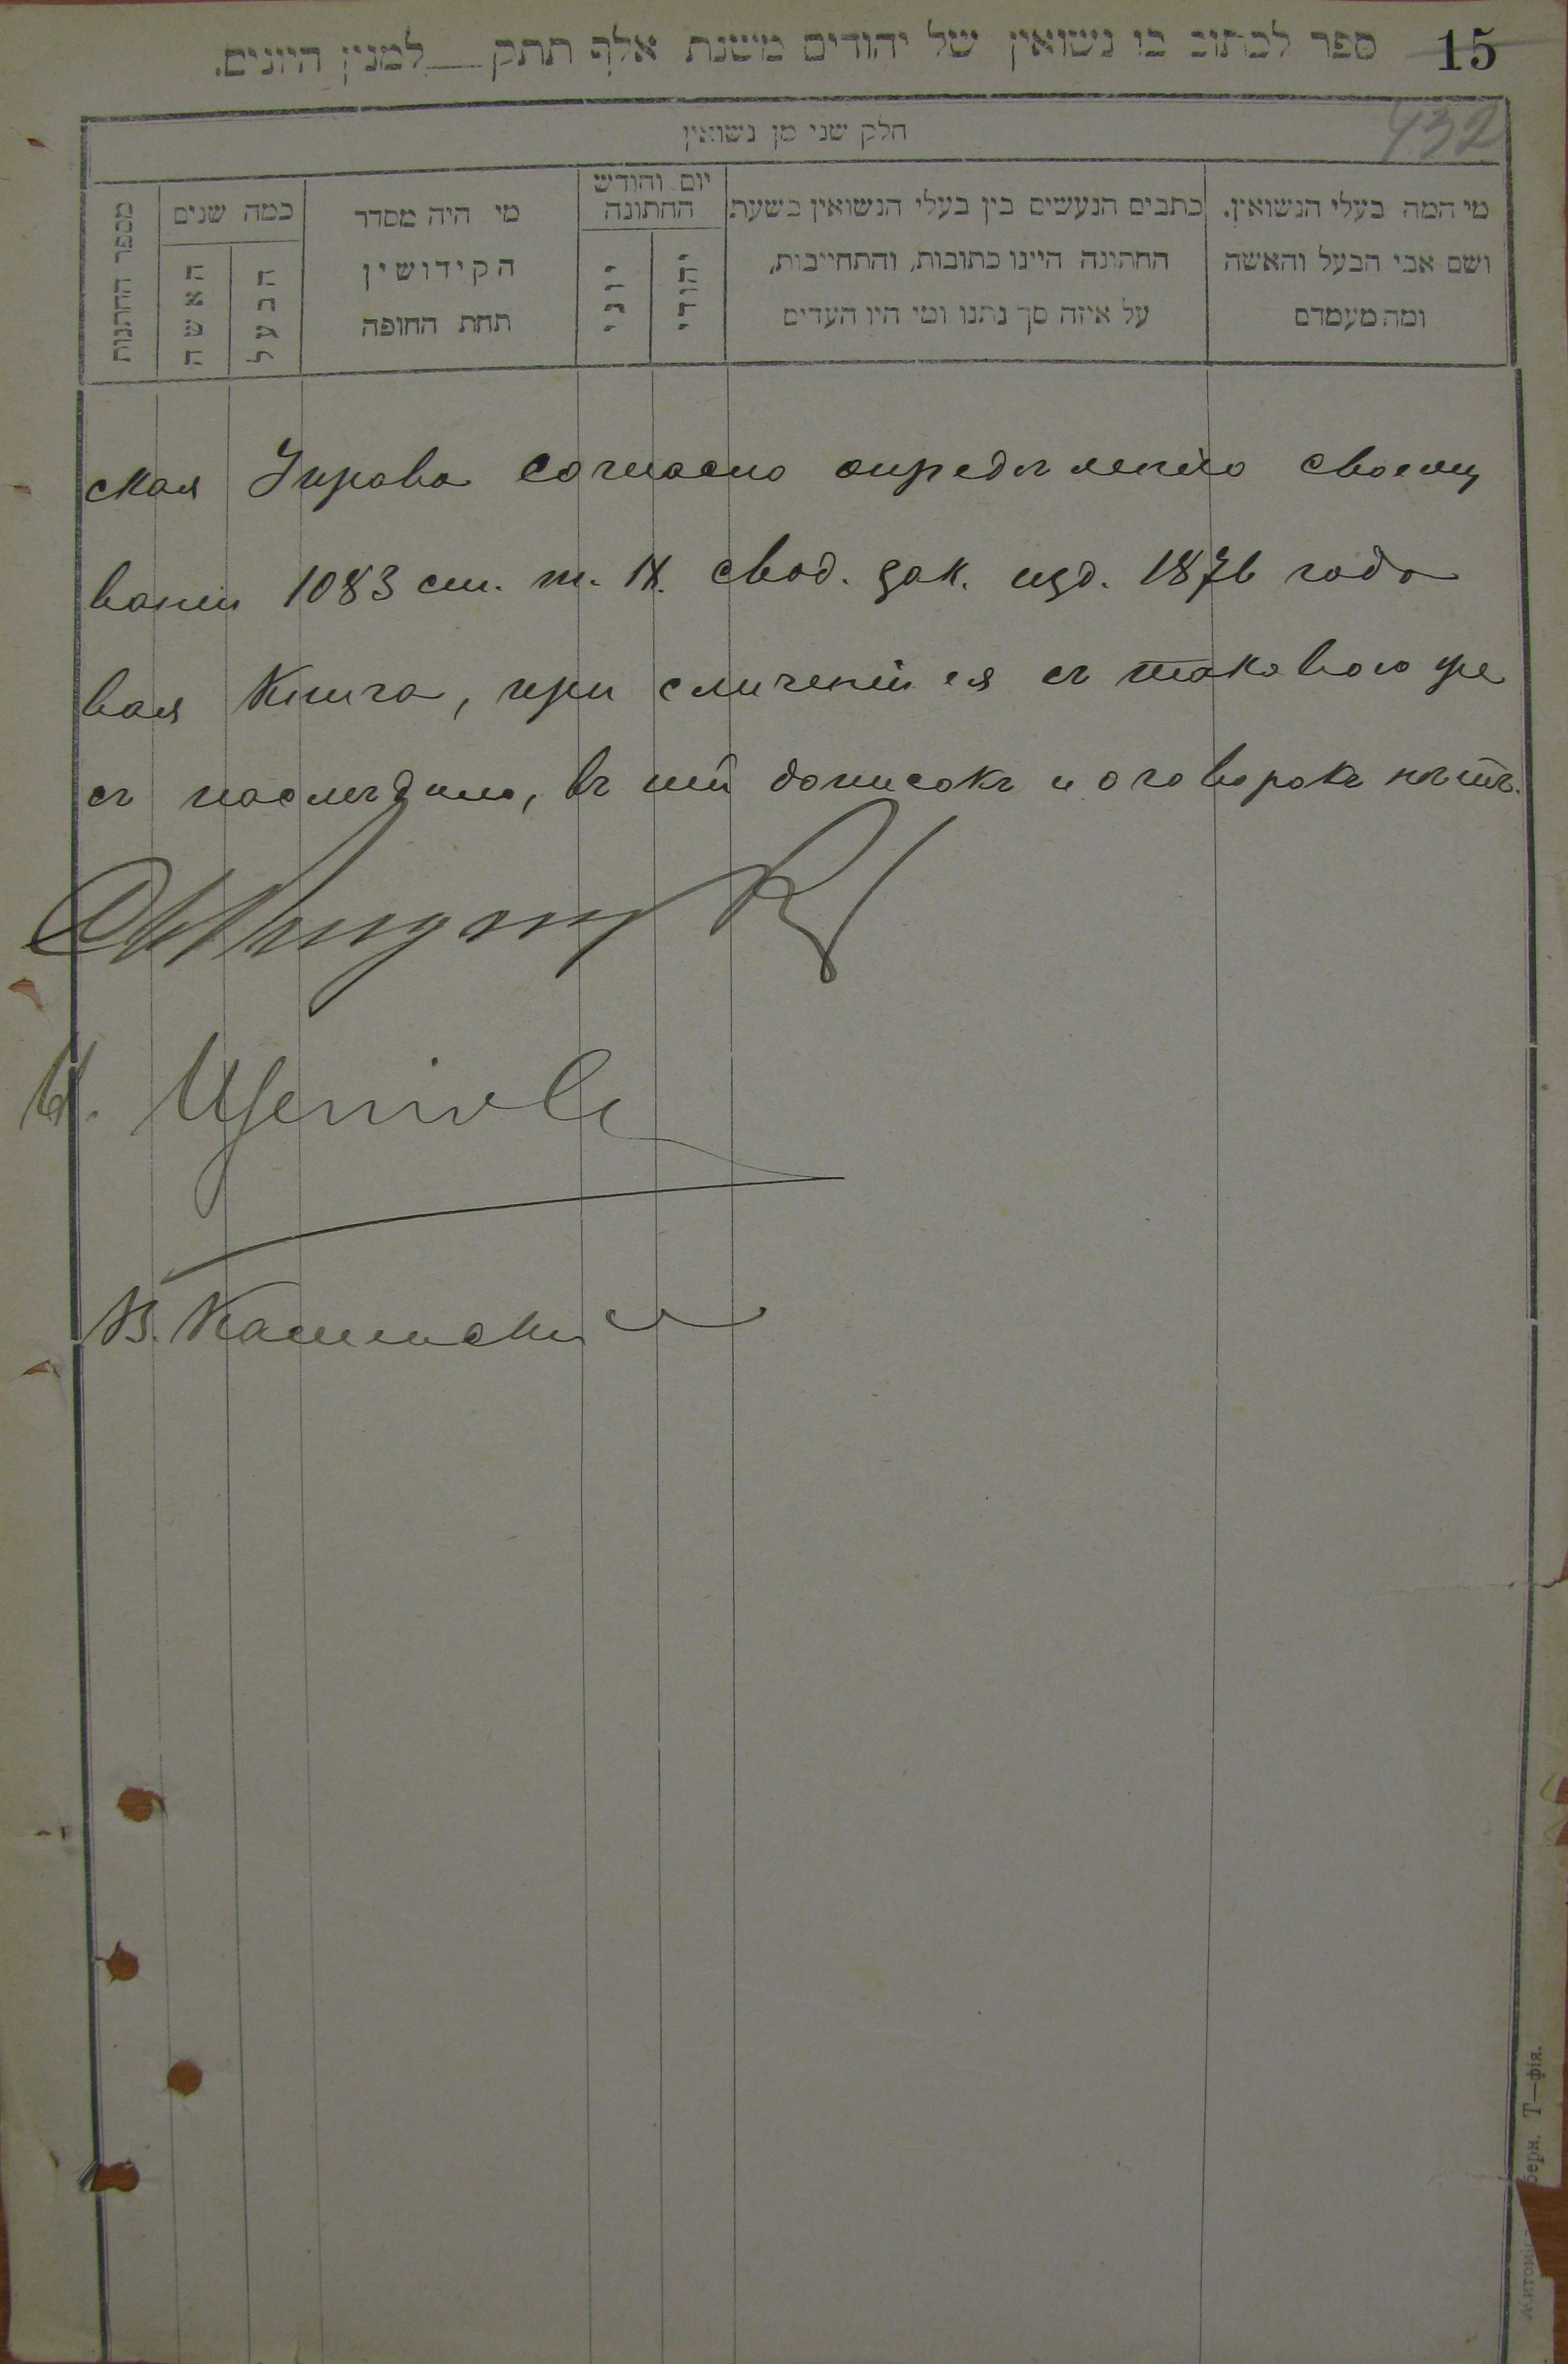 15 ספר לכתוב בו נשואין של יהודים משנת אלף תתק___למנין היונים.
432
חלק שני מן נשואין
מי המה בעלי הנשואין,
ושם אבי הבעל והאשה
ומה מעמדם
כתבים הנעשים בין בעלי הנשואין בשעת
החתונה היינו כתובות, והתחייבות,
על איזה סך נתנו ומי היו העדים
יום וחודש
החתונה
יהודי
יוני
מי היה מסדר
הקידושין
תחת החופה
כמה שנים
הבעל
האשה
מספר החתנות
ская Управа согласно опредѣленію своему
ваніи 1083 ст. т. IX. свод. зак. изд. 1876 года
вая Книга, при сличеніи ея съ таковою же
съ послѣднею, въ ней дописокъ и оговорокъ нѣтъ.
В. Каминскій
берн. Т—фія.